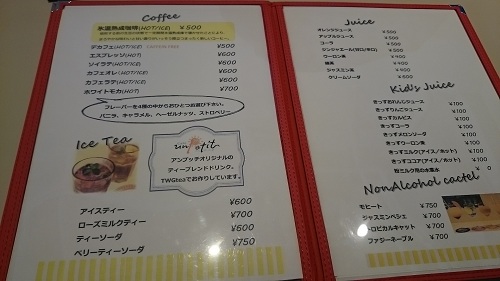 Coffee
氷温熟成珈琲(HOT/ICE) ¥500
デカフェ(HOT/ICE) CAFFEIN FREE ¥500
エスプレッソ(HOT) ¥600
ソイラテ(HOT/ICE) ¥600
カフェオレ(HOT/ICE) ¥600
カフェラテ(HOT/ICE) ¥600
ホワイトモカ(HOT) ¥700
フレーバーを4種の中からおひとつお選び下さい。
バニラ、キャラメル、ヘーゼルナッツ、ストロベリー
Ice Tea
un Petit
アンプッチオリジナルの
ティーブレンドドリンク。
TWGteaでお作りしています。
アイスティー ¥600
ローズミルクティー ¥700
ティーソーダ ¥600
ベリーティーソーダ ¥750
Juice
オレンジジュース ¥400
アップルジュース ¥400
コーラ ¥400
ジンジャエール(甘口/辛口)
ウーロン茶 ¥400
緑茶 ¥400
ジャスミン茶 ¥400
クリームソーダ
Kid's Juice
きっずおれんじジュース ¥100
きっずりんごジュース ¥100
きっずカルピス ¥100
きっずコーラ ¥100
きっずメロンソーダ ¥100
きっずウーロン茶 ¥100
きっずミルク(アイス/ホット) ¥100
きっずココア(アイス/ホット) ¥100
粉ミルク用のお湯水 ¥0
NonAlcohol cactel
モヒート ¥750
ジャスミンペシェ ¥700
トロピカルキャット ¥700
ファジーネーブル ¥700